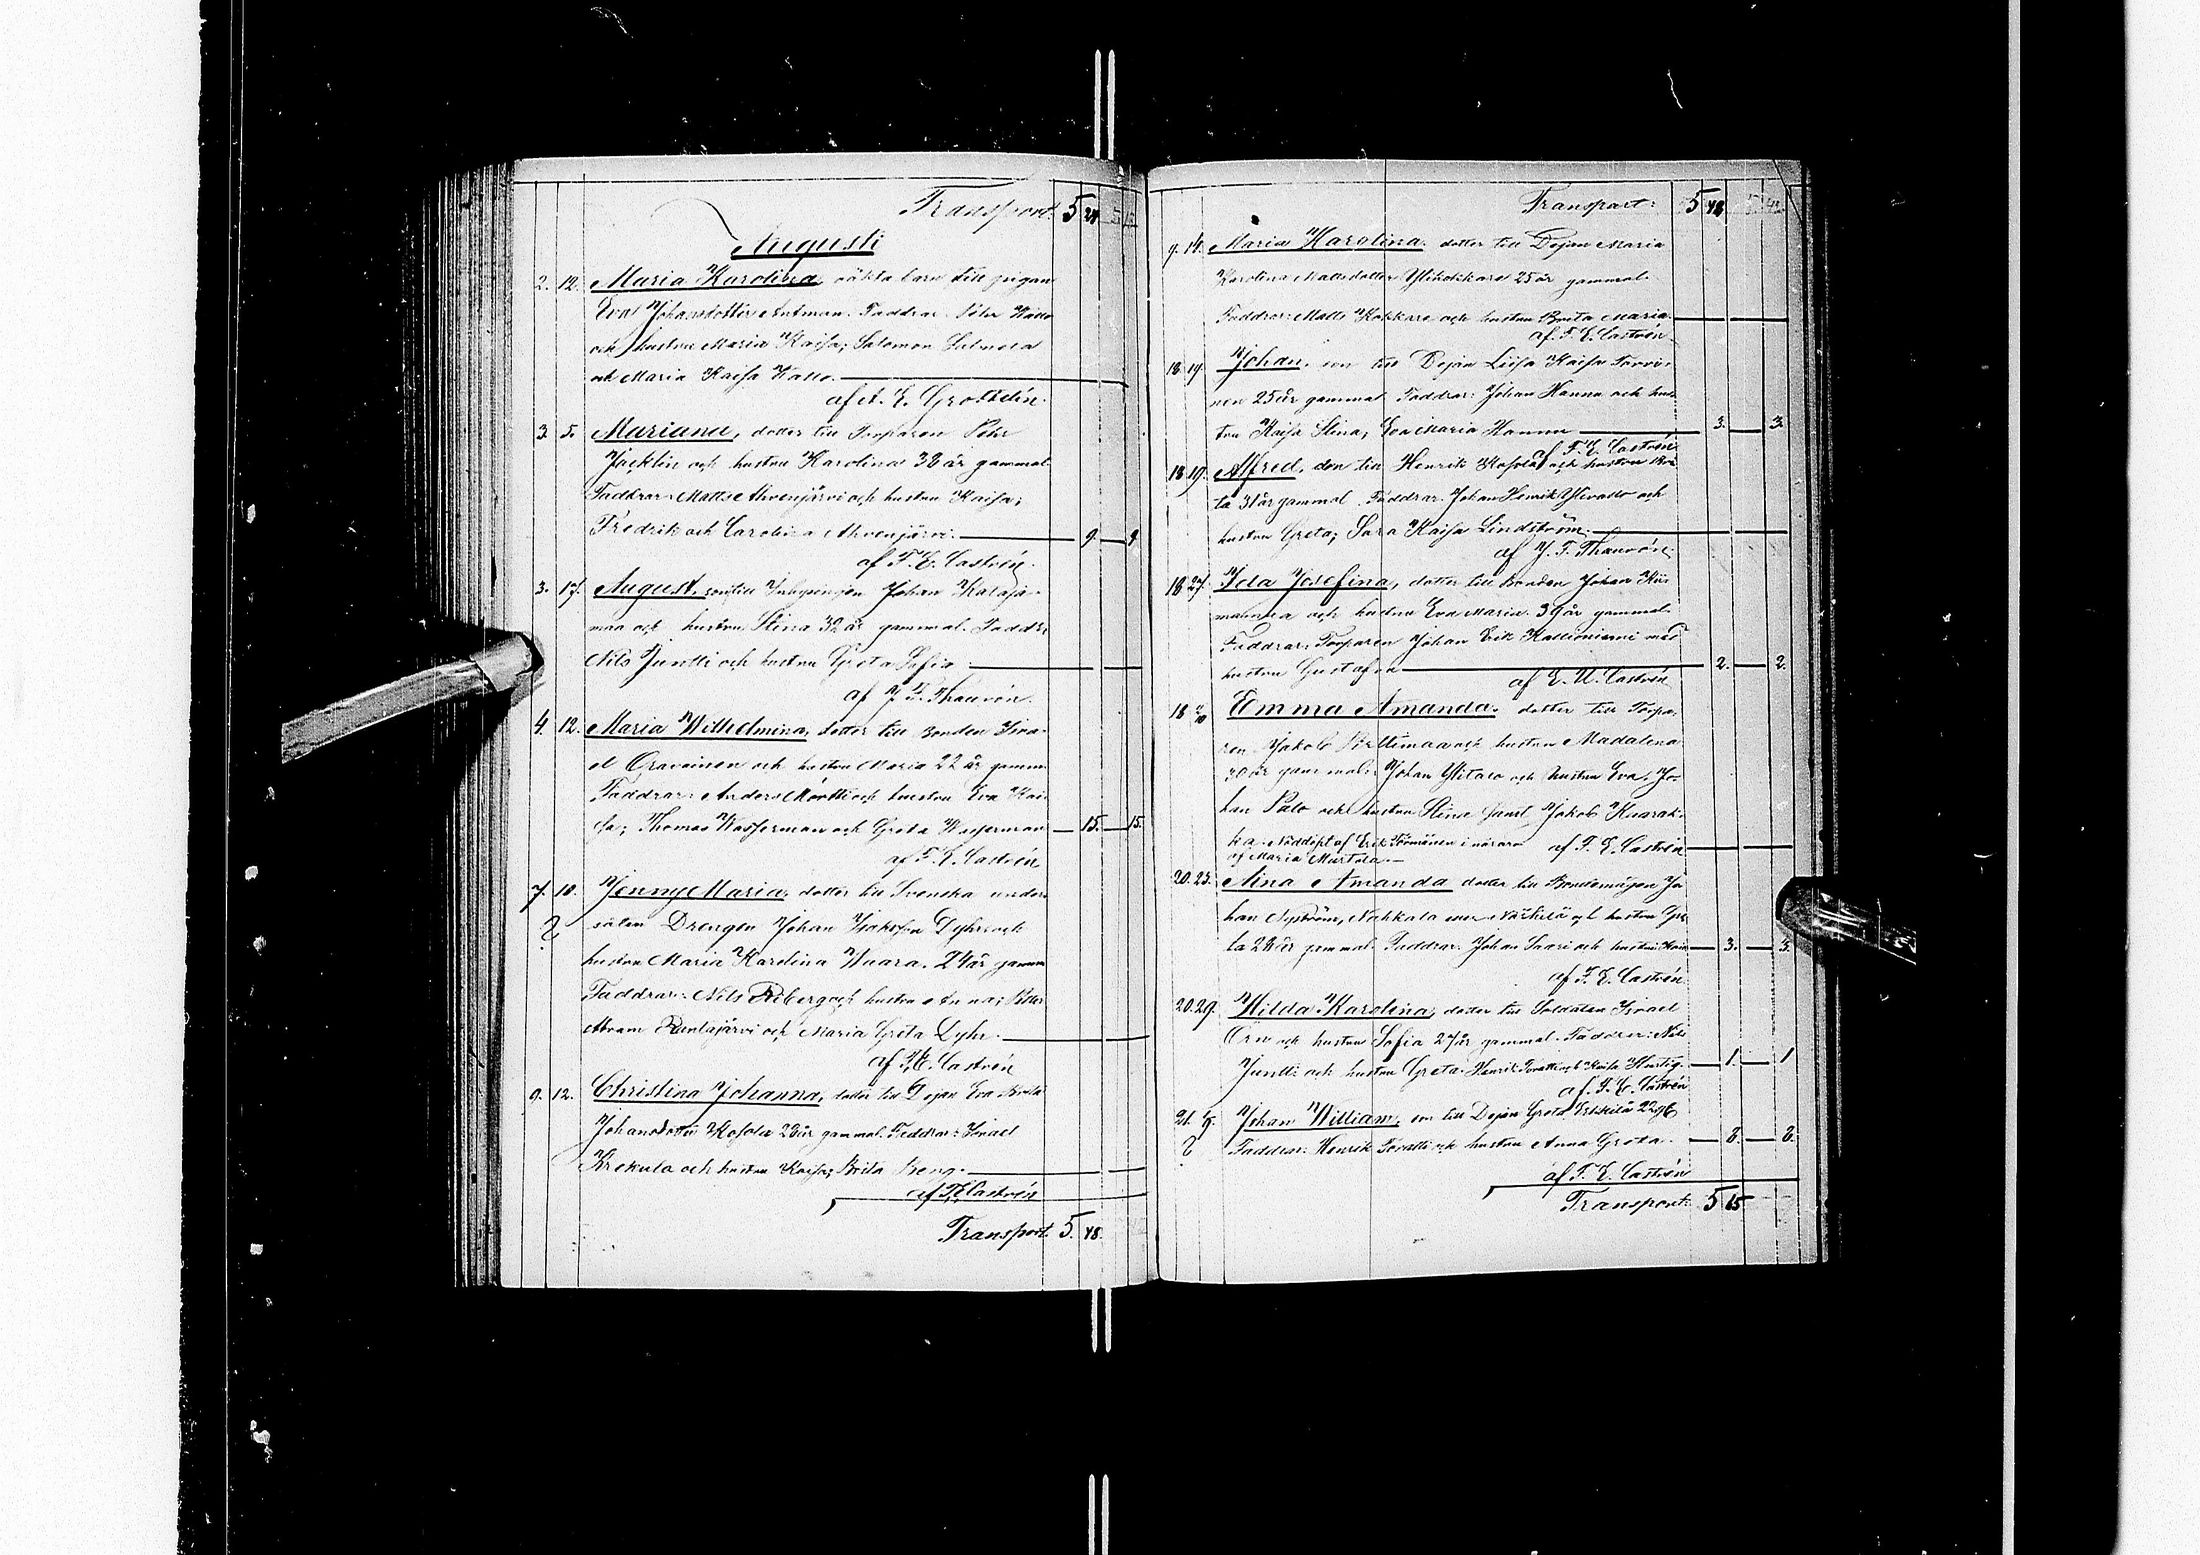 Transport. 5 24
Augusti
2. 12. Maria Karolina, oäkta barn till pigan
Eva Johansdotter Antman. Faddrar: Pehr
och hustru Maria Kaisa; Salomon
och Maria Kaisa
af A. E. Grotelin.
3. 5. Mariana, dotter till Torparen Pehr
Jacklin och hustru Karolina 38 år gammal
Faddrar: Matts Ahvenjärvi och hustru Kaisa;
Fredrik och Carolina Ahvenjärvi. 9. 9
af F. E. Castrén.
3. 17. August, son till Inhysingen Johan Kataja-
maa och hustru Stina 32 år gammal. Faddr:
Nils Juntti och hustru Greta Sofia
af J. F. Thauvón.
4. 12. Maria Wilhelmina, dotter till Bonden Isra-
el Oravainen och hustru Maria 22 år gamm.
Faddrar: Anders och hustru Eva Kai-
sa; Thomas Wasserman och Greta Wasserman 15. 15.
af F. E. Castrén
7. 10. Jenny Maria, dotter till Svenska under-
såten Drengen Johan Isaksson Dyhr och
hustru Maria Karolina Waara. 24 år gamm
Faddrar: Nils och hustru Anna; Petter
Abram Rantajärvi och Maria Greta Dyhr.
af F. E. Castrén
9. 12. Christina Johanna, dotter till Dejan Eva Brita
Johansdotter 28 år gammal. Faddrar: Israel
Krekula och hustru Kaisa; Brita Berg.
af F. E. Castrén
Transport 5. 48.
Transport: 5 48
9. 14. Maria Karolina, dotter till Dejan Maria
Karolina Mattsdotter Ylikokkare 25 år gammal.
Faddrar: Matts Kokkare och hustru Brita Maria.
af F. E. Castrén
18 19. Johan, son till Dejan Liisa Kaisa
nen 25 år gammal Faddrar: Johan Hannu och hus-
tru Kaisa Stina; Eva Maria Hannu 3. 3.
af F. E. Castrén
18 19. Alfred, son till Henrik och hustru Bri-
ta 31 år gammal. Faddrar: Johan Henrik Ylivaara och
hustru Greta; Sara Kaisa Lindström.
af J. F. Thauvón.
18 27. Ida Josefina, dotter till Bonden Johan
och hustru Eva Maria. 39 år gammal.
Faddrar: Torparen Johan Erik Kallioniemi med
hustru Gustafva 2. 2.
af E. U. Castrén
18 Emma Amanda, dotter till Torpa-
ren Jakob Pirttimaa och hustru Madalena
30 år gammal: Johan Ylitaro och hustru Eva; Jo-
han Palo och hustru Stina samt Jakob Kuarak-
ka. Nöddöpt af Erik Törmänen i närvaro af F. E. Castrén
af Maria Murtola.
20. 25. Aina Amanda dotter till Bondemågen Jo-
han Nyström, Nahkala och hustru Gre-
ta 28 år gammal. Faddrar: Johan Saari och hustru 3. 3.
af F. E. Castrén.
20. 29. Hilda Karolina, dotter till Soldaten Israel
Örn och hustru Sofia 27 år gammal. Faddrar: Nils
Juntti och hustru Greta. Henrik och Kaisa Hurtig. 1. 1
af F. E. Castrén
21. 9. Johan William, son till Dejan Greta
Faddrar: Henrik och hustru Anna Greta. 8. 8.
af F. E. Castrén
Transport: 5 65